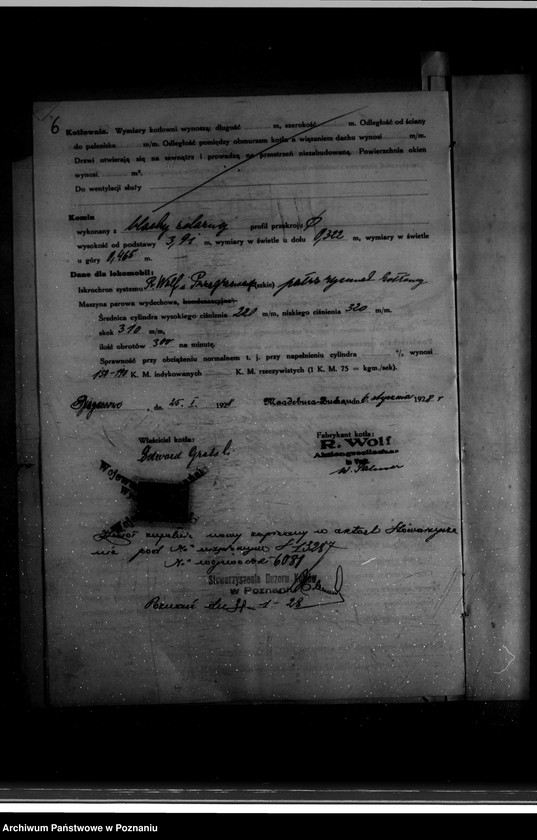 6
Kotłownia. Wymiary kotłowni wynoszą: długość m, szerokość m. Odległość od ściany
do paleniska m/m. Odległość pomiędzy obmurzem kotła a wiązaniem dachu wynosi m/m.
Drzwi otwierają się na zewnątrz i prowadzą na przestrzeń niezabudowaną. Powierzchnia okien
wynosi m².
Do wentylacji służy
Komin
wykonany z blachy żelaznej profil przekroju
wysokość od podstawy m, wymiary w świetle u dołu 0,322 m, wymiary w świetle
u góry 0,465 m.
Dane dla lokomobil:
Iskrochron systemu R. Wolf, (szkic) patrz rysunek
Maszyna parowa wydechowa, kondensacyjna.
Średnica cylindra wysokiego ciśnienia 220 m/m, niskiego ciśnienia 320 m/m.
skok 310 m/m,
ilość obrotów 300 na minutę
Sprawność przy obciążeniu normalnem t. j. przy napełnieniu cylindra % wynosi
K. M. indykowanych K. M. rzeczywistych (1 K. M. 75 = kgm./sek).
, dn. 25. I. 1928 Magdeburg-Buckau, dn. 6 stycznia 1928 r
Właściciel kotła: Fabrykant kotła:
Edward R. Wolf
Aktiengesellschaft
w aktach Stowarzysze
nia pod № 
№ 6089
Stowarzyszenia Dozoru Kotłów
w Poznaniu
Poznań 1 - 28
Archiwum Państwowe w Poznaniu